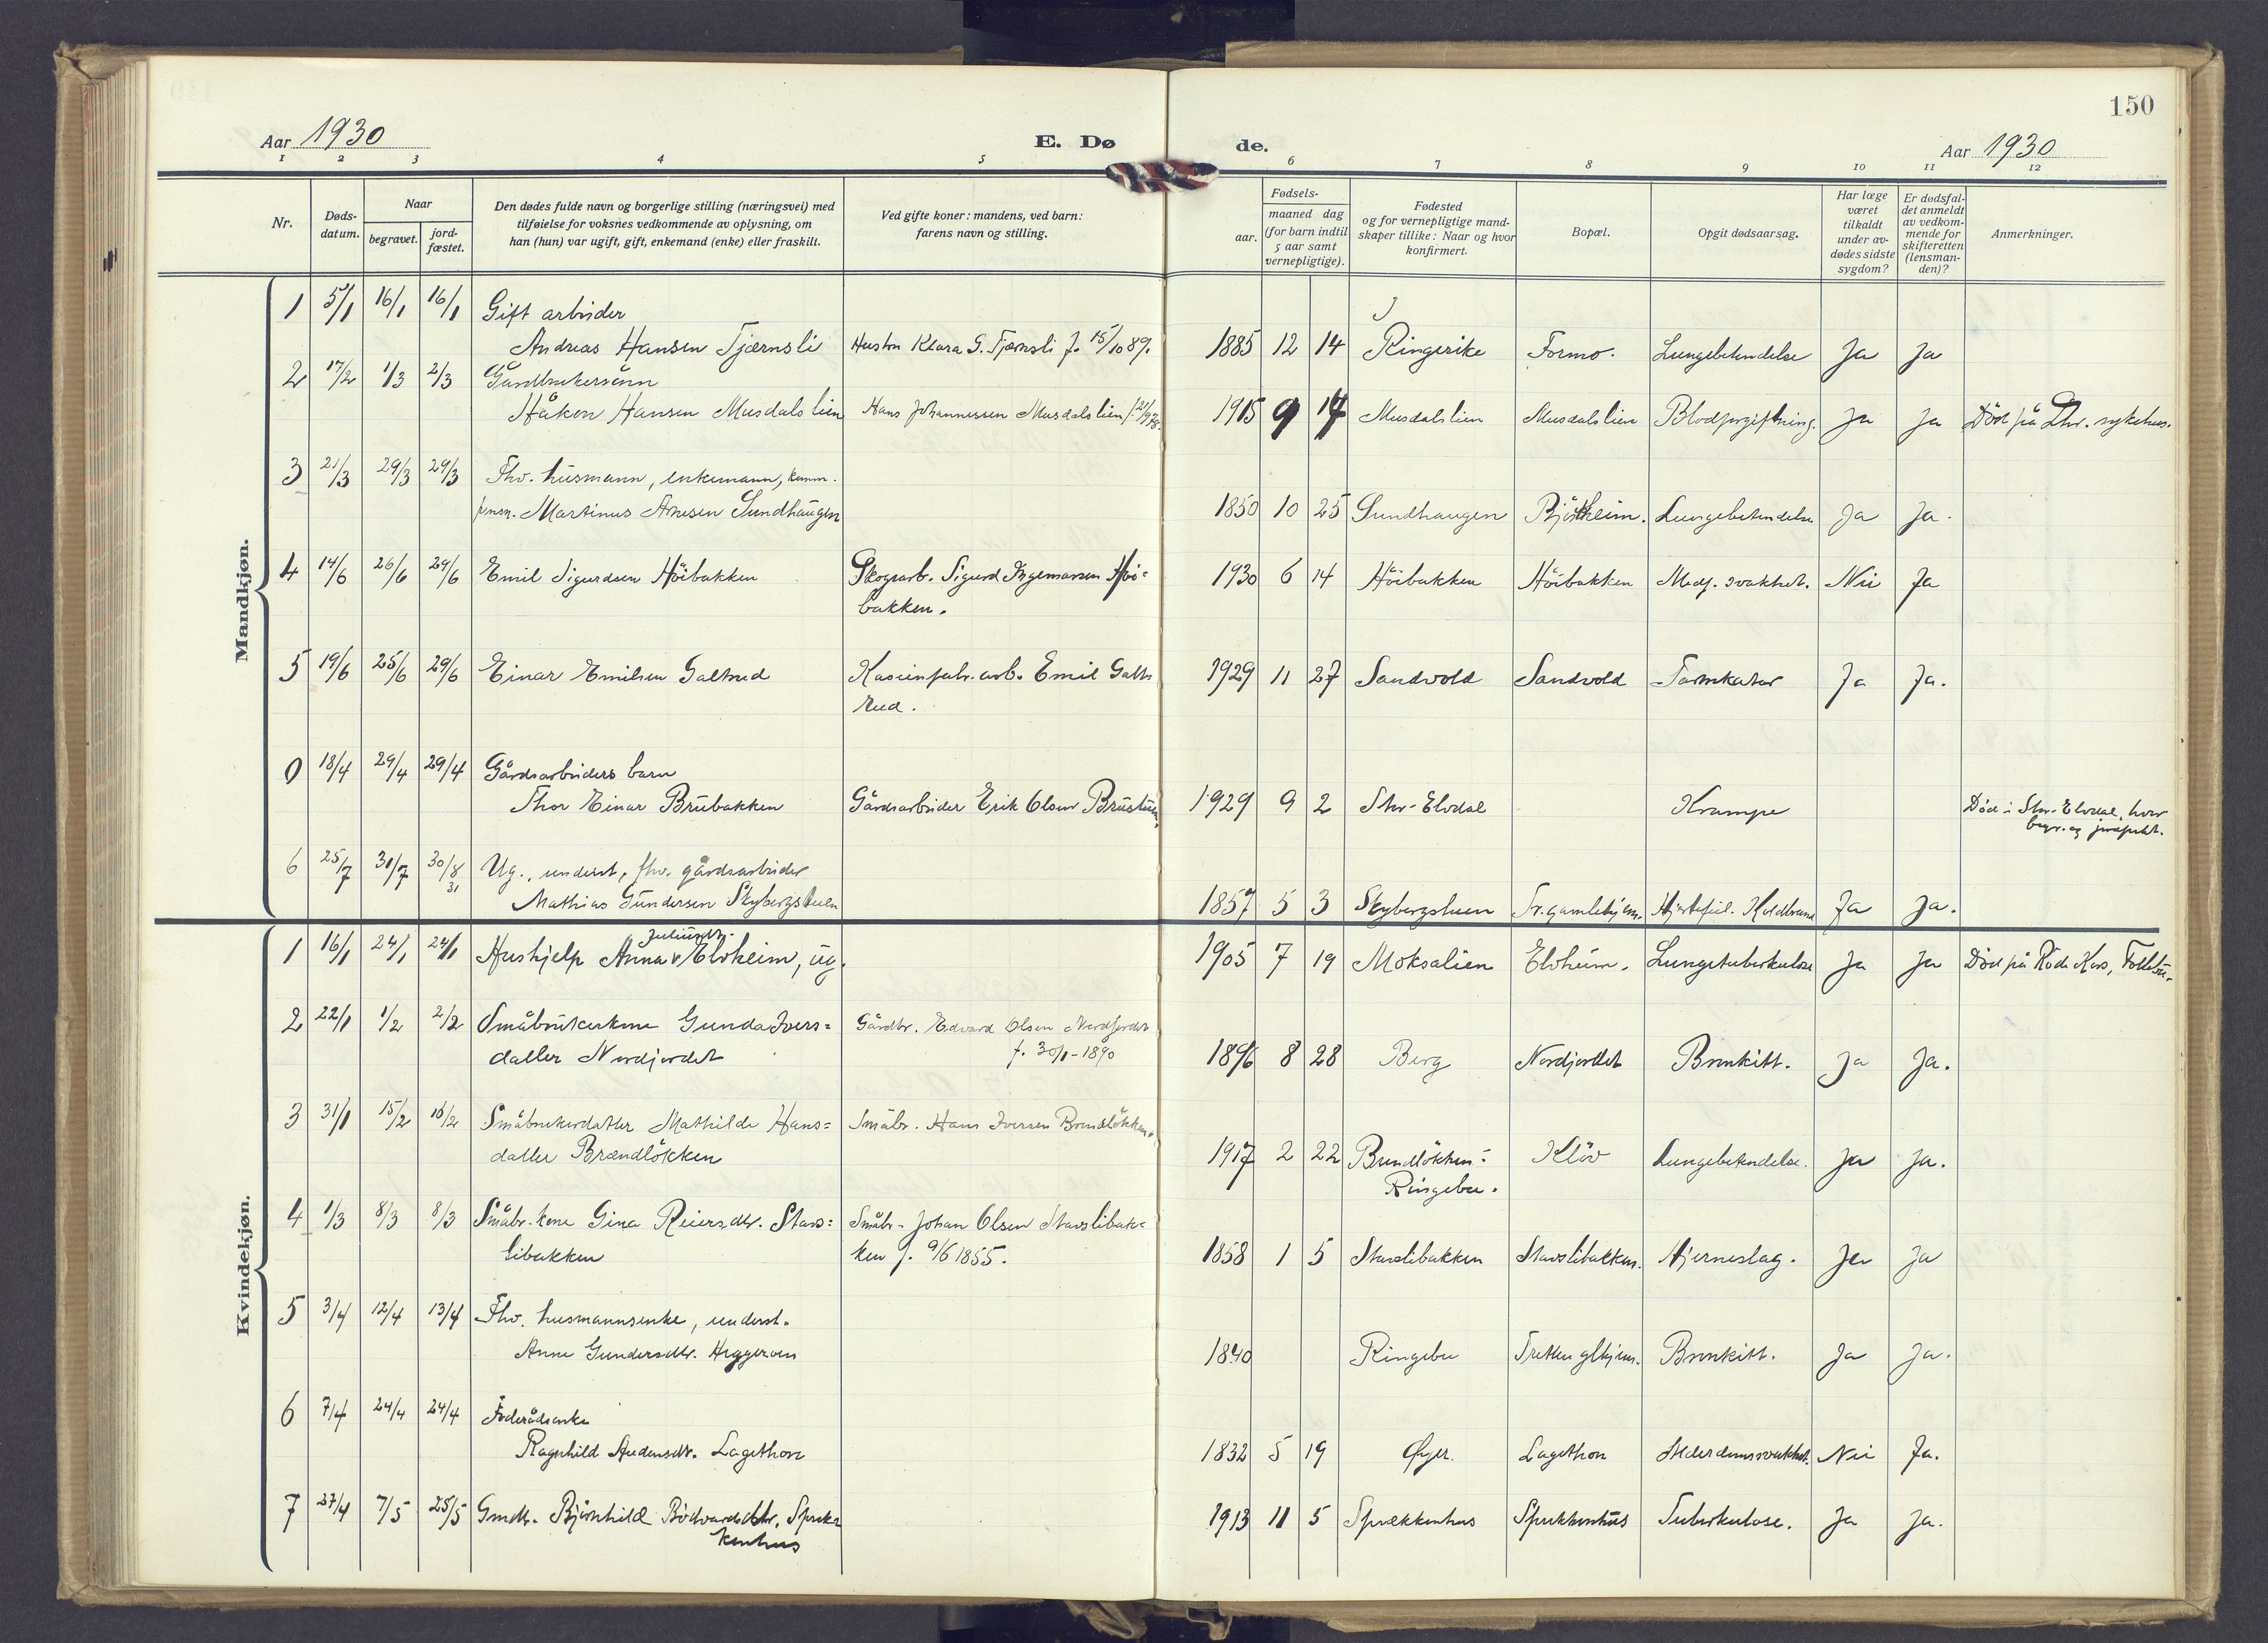 150
Aar 1930
E. Dø
de.
Aar 1930
1 2 3 4 5 6 7 8 9 10 11 12
Nr.
Døds-
datum.
Naar
begravet.
jord-
fæstet.
Den dødes fulde navn og borgerlige stilling (næringsvei) med
tilføielse for voksnes vedkommende av oplysning, om
han (hun) var ugift, gift, enkemand (enke) eller fraskilt.
Ved gifte koner: mandens, ved barn:
farens navn og stilling.
aar.
Fødsels-
maaned dag
(for barn indtil
5 aar samt
vernepligtige).
Fødested
og for vernepligtige mand-
skaper tillike: Naar og hvor
konfirmert.
Bopæl.
Opgit dødsaarsag.
Har læge
været
tilkaldt
under av-
dødes sidste
sygdom?
Er dødsfal-
det anmeldt
av vedkom-
mende for
skifteretten
(lensman-
den)?
Anmerkninger.
Mandkjøn.
1 5/1 16/1 16/1 Gift arbeider
Andreas Hansen Tjærnsli Hustru Klara G. Tjærnsli f. 15/10 89. 1885 12 14 Ringerike Formo. Lungebetendelse Ja Ja
2 17/2 1/3 2/3 Gårdbrukersønn
Håkon Hansen Musdalslien Hans Johannessen Musdalslien 1915 9 14 Musdalslien Musdalslien Blodforgiftning. Ja Ja Död på Lhr. sykehus.
3 21/3 29/3 29/3 Fhv. husmann, enkemann, komm.
pensn. Martinus Arnesen Sundhaugen 1850 10 25 Sundhaugen Lungebetendelse Ja Ja.
4 14/6 26/6 29/6 Emil Sigurdsen Höibakken Skogsarb. Sigurd Ingemansen Höi= 1930 6 14 Höibakken Höibakken Medf. svakhet. Nei Ja
bakken.
5 19/6 25/6 29/6 Einar Emilsen Galtrud Kaseinfabr. arb. Emil Galt= 1929 11 27 Sandvold Sandvold Tarmkatar Ja Ja.
rud.
0 18/4 29/4 29/4 Gårdsarbeiders barn
Thor Einar Brubakken Gårdsarbeider Erik Olsen 1929 9 2 Stor-Elvdal Krampe Död i Stor-Elvdal, hvor
begr. og jordfestet.
6 25/7 31/7 30/8 Ug., underst, fhv. gårdsarbeider
31
Mathias Gundersen Skybergstuen 1857 5 3 Skybergstuen Tr. gamlehjem. Hjertefeil. Koldbrand Ja Ja.
Kvindekjøn.
Juliusdtr.
1 16/1 24/1 24/1 Hushjelp Anna v Elvheim, ug. 1905 7 19 Moksalien Elvheim. Lungetuberkulose Ja Ja Död på Röde Kors,
2 22/1 1/2 2/2 Småbrukerkone Gunda Ivers= Gårdbr. Edvard Olsen Nordjordet
datter Nordjordet f. 30/1-1890 1896 8 28 Berg Nordjordet Bronkitt. Ja Ja.
3 31/1 15/2 16/2 Småbrukerdatter Mathilde Hans= Småbr. Hans Iversen Brendlökken.
datter Brændlökken 1917 2 22 Brendlökken- Klöv Lungebetendelse. Ja Ja.
Ringebu.
4 1/3 8/3 8/3 Småbr. kone Gina Reiersdtr. Stavs= Småbr. Johan Olsen Stavslibak=
libakken ken f. 9/6 1855. 1858 1 5 Stavslibakken Stavslibakken. Hjerneslag. Ja Ja
5 3/4 12/4 13/4 Fhv. husmannsenke, underst.
Anne Gundersdtr. Heggerven 1840 Ringebu Tretten glhjem. Bronkitt. Ja Ja.
6 7/4 24/4 24/4 Föderådsenke
Ragnhild Audensdtr. Lagethon 1832 5 19 Øyer. Lagethon Alderdomssvakhet. Nei Ja.
7 27/4 7/5 25/5 Gmdtr. Björnhild Bödvardsdtr. Sprek= 1913 11 5 Sprækkenhus Sprekkenhus Tuberkulose. Ja Ja.
kenhus